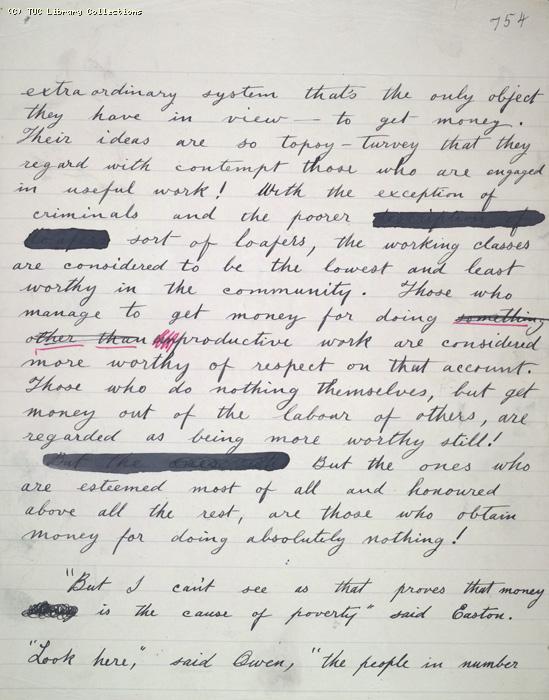 (C) TUC Library Collections
754
extraordinary system that's the only object
they have in view — to get money.
Their ideas are so topsy-turvey that they
regard with contempt those who are engaged
in useful work! With the exception of
criminals and the poorer description of
loafers sort of loafers, the working classes
are considered to be the lowest and least
worthy in the community. Those who
manage to get money for doing something
other than productive work are considered
more worthy of respect on that account.
Those who do nothing themselves, but get
money out of the labour of others, are
regarded as being more worthy still!
But the ones who But the ones who
are esteemed most of all and honoured
above all the rest, are those who obtain
money for doing absolutely nothing!
"But I can't see as that proves that money
is the cause of poverty" said Easton.
"Look here," said Owen, "the people in number